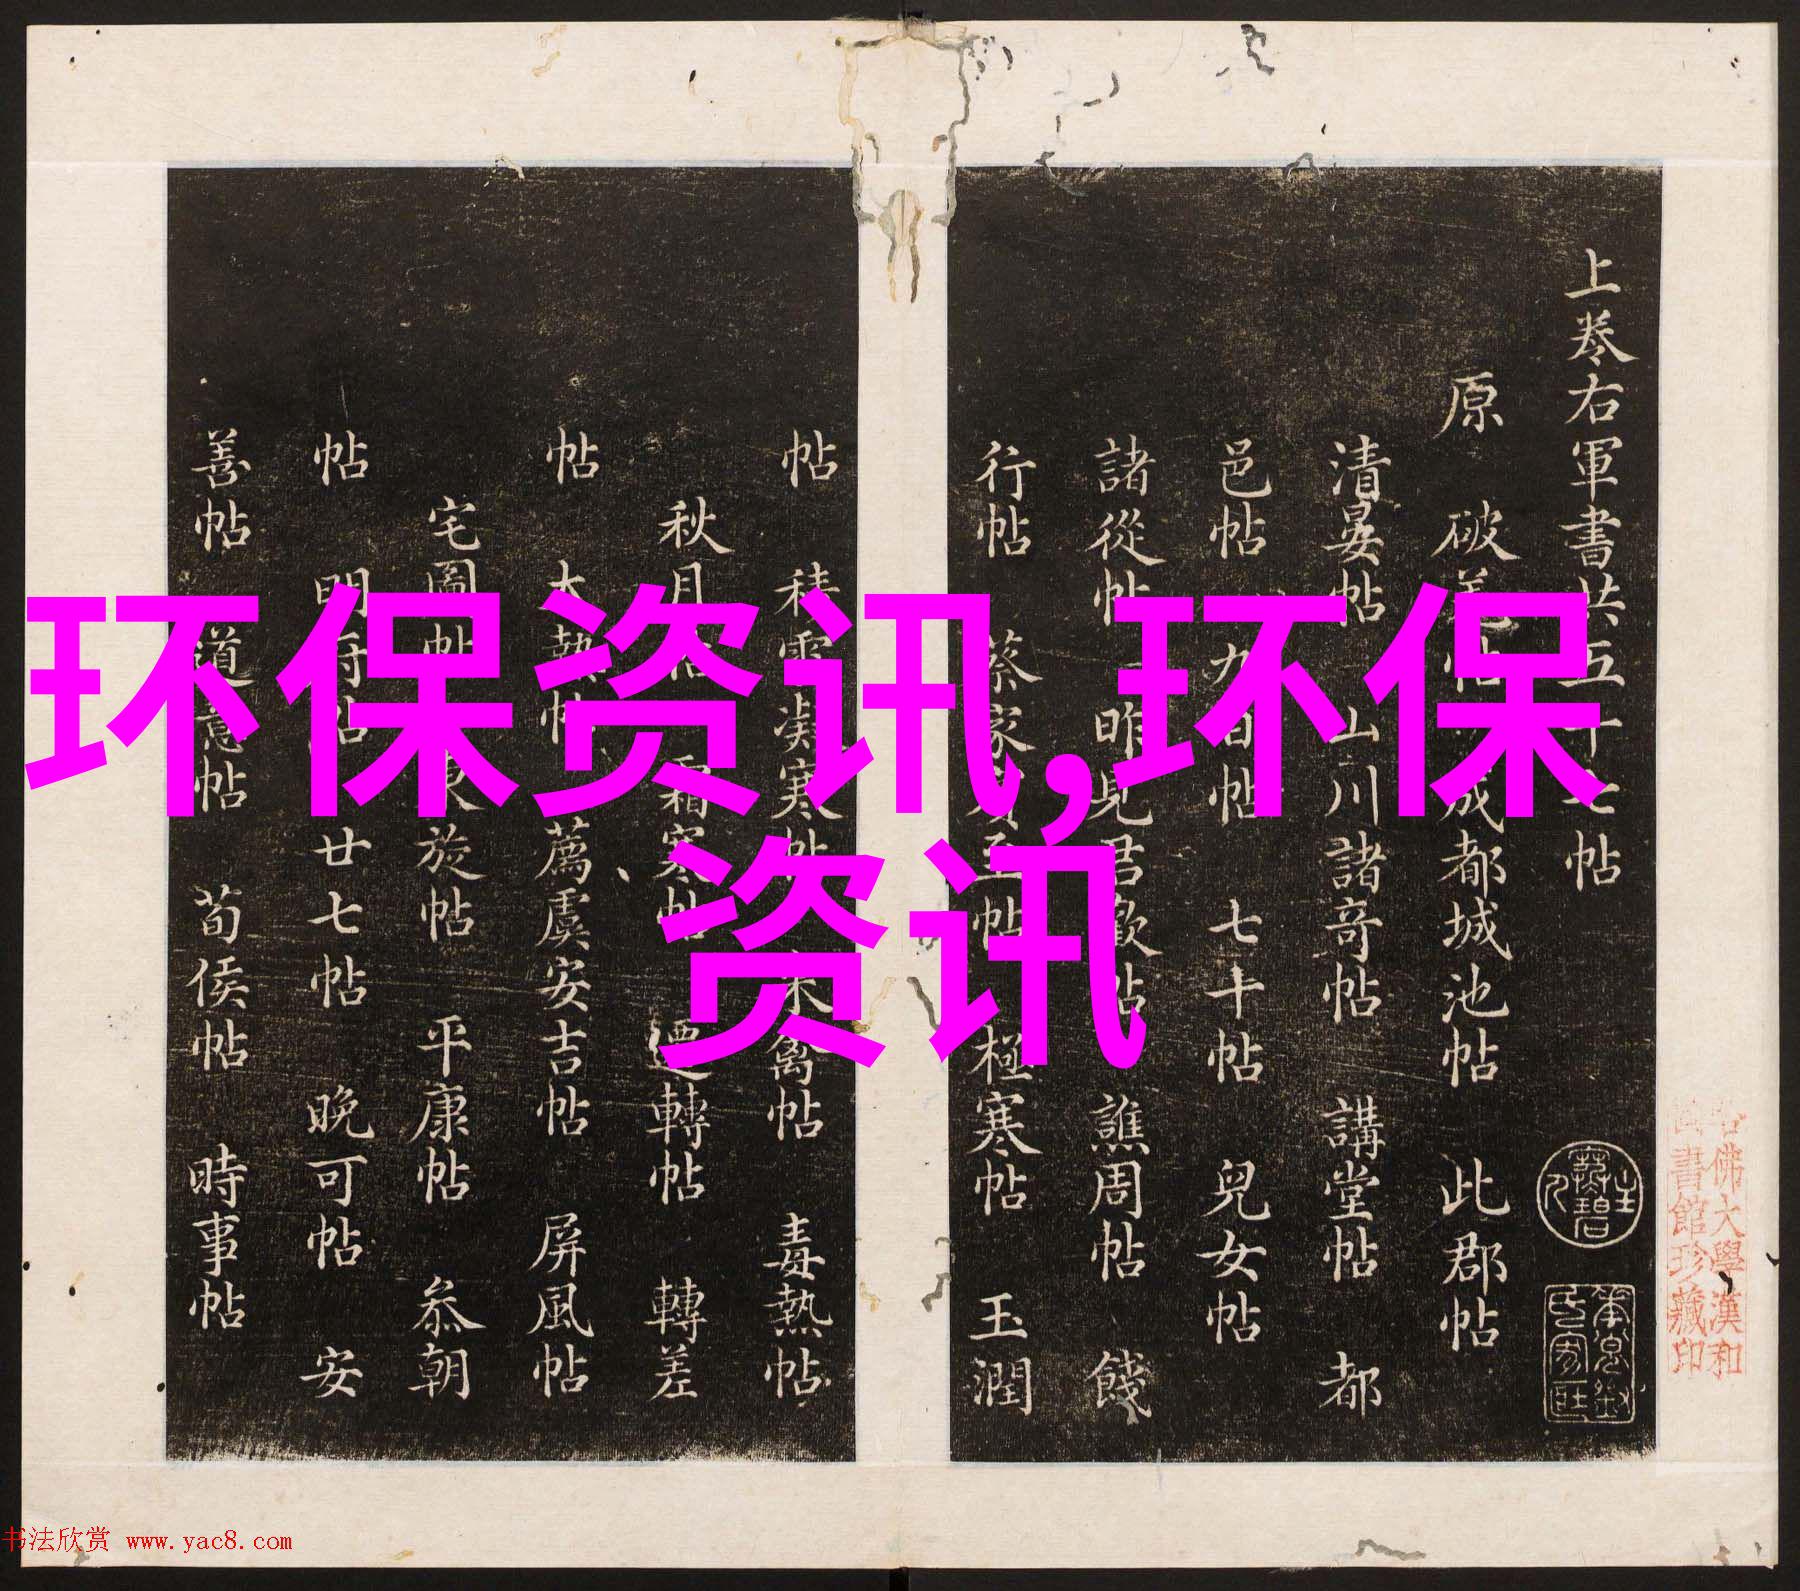 上卷右軍書共五十七帖
原
破羌帖 成都城池帖 此郡帖
清晏帖 山川諸奇帖 講堂帖 都
邑帖 九日帖 七十帖 兒女帖
諸從帖 昨見君歡帖 譙周帖 餞
行帖 蔡家賓至帖 極寒帖 玉潤
帖 積雪凝寒帖 來禽帖 毒熱帖
秋月帖 霜寒帖 遷轉帖 轉差
帖 大熱帖 薦虞安吉帖 屏風帖
宅圖帖 東旋帖 平康帖 叅朝
帖 明府帖 廿七帖 晚可帖 安
善帖 道意帖 荀侯帖 時事帖
佛大學漢和
書館珍藏印
环保资讯,环保
资讯
书法欣赏 www.yac8.com